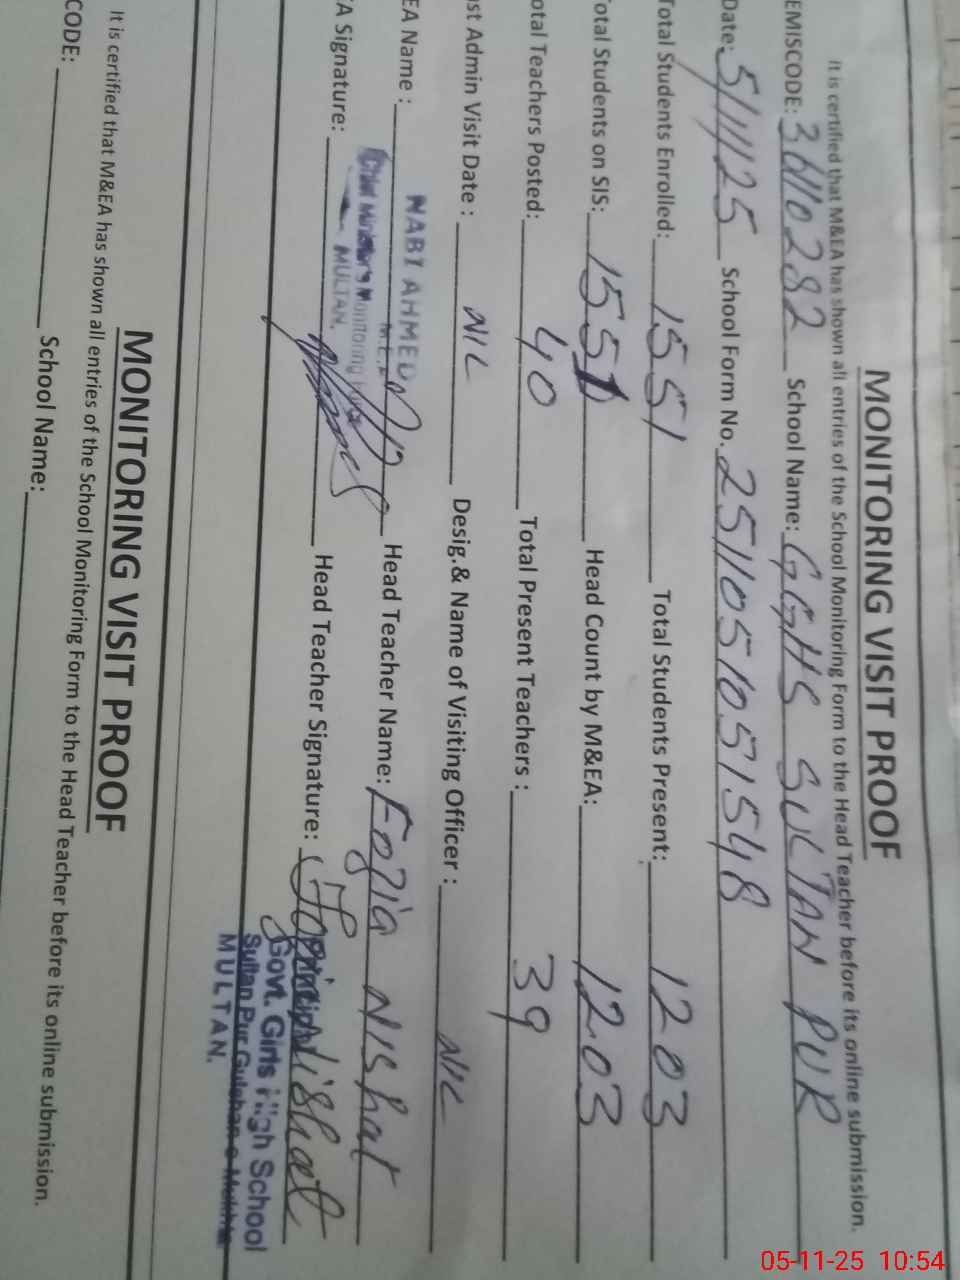 MONITORING VISIT PROOF
It is certified that M&EA has shown all entries of the School Monitoring Form to the Head Teacher before its online submission.
EMISCODE: 36110282 School Name: GGHS SULTAN PUR
Date: 5/11/25 School Form No. 2511051051548
Total Students Enrolled: 1551 Total Students Present: 1203
Total Students on SIS: 1551 Head Count by M&EA: 1203
Total Teachers Posted: 40 Total Present Teachers : 39
st Admin Visit Date : NIL Desig.& Name of Visiting Officer : NIL
EA Name : NABI AHMED Head Teacher Name: Fozia Nishat
M.E.A
Chief Minister's Monitoring Force
MULTAN.
EA Signature: Head Teacher Signature: Nishat
Principal
Govt. Girls High School
Sultan Pur Gulshan-e-
MULTAN.
MONITORING VISIT PROOF
It is certified that M&EA has shown all entries of the School Monitoring Form to the Head Teacher before its online submission.
CODE: School Name:
05-11-25 10:54